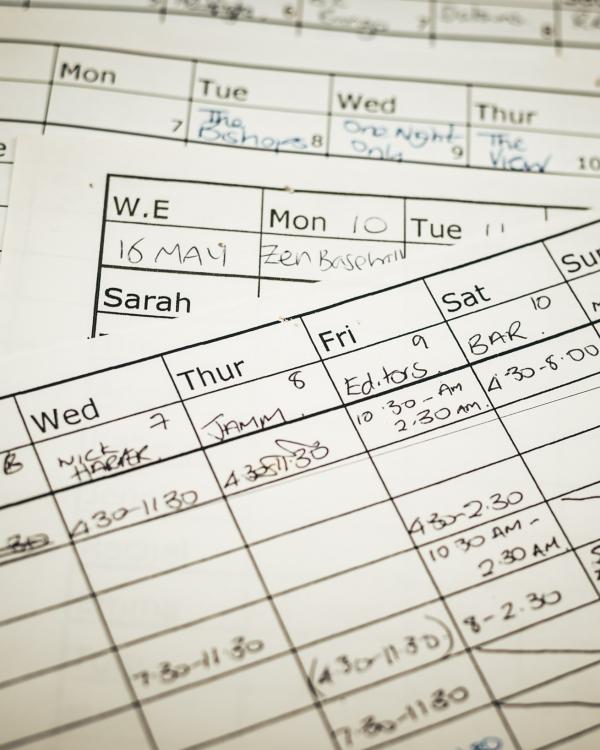 Mon Tue Wed Thur
7 The Bishops 8 One Night Only 9 The View 10
W.E Mon 10 Tue 11
16 MAY Zen Baseball
Sarah
Wed Thur Fri Sat Sun
7 8 9 10
NICK JAMM. Editors. BAR.
4.30-11.30 10.30-AM 2.30 AM. 4.30-8.00
4.30-2.30
10.30 AM-
2.30 AM.
7.30-11.30 (4.30-11.30) 8-2.30
7.30-11.30